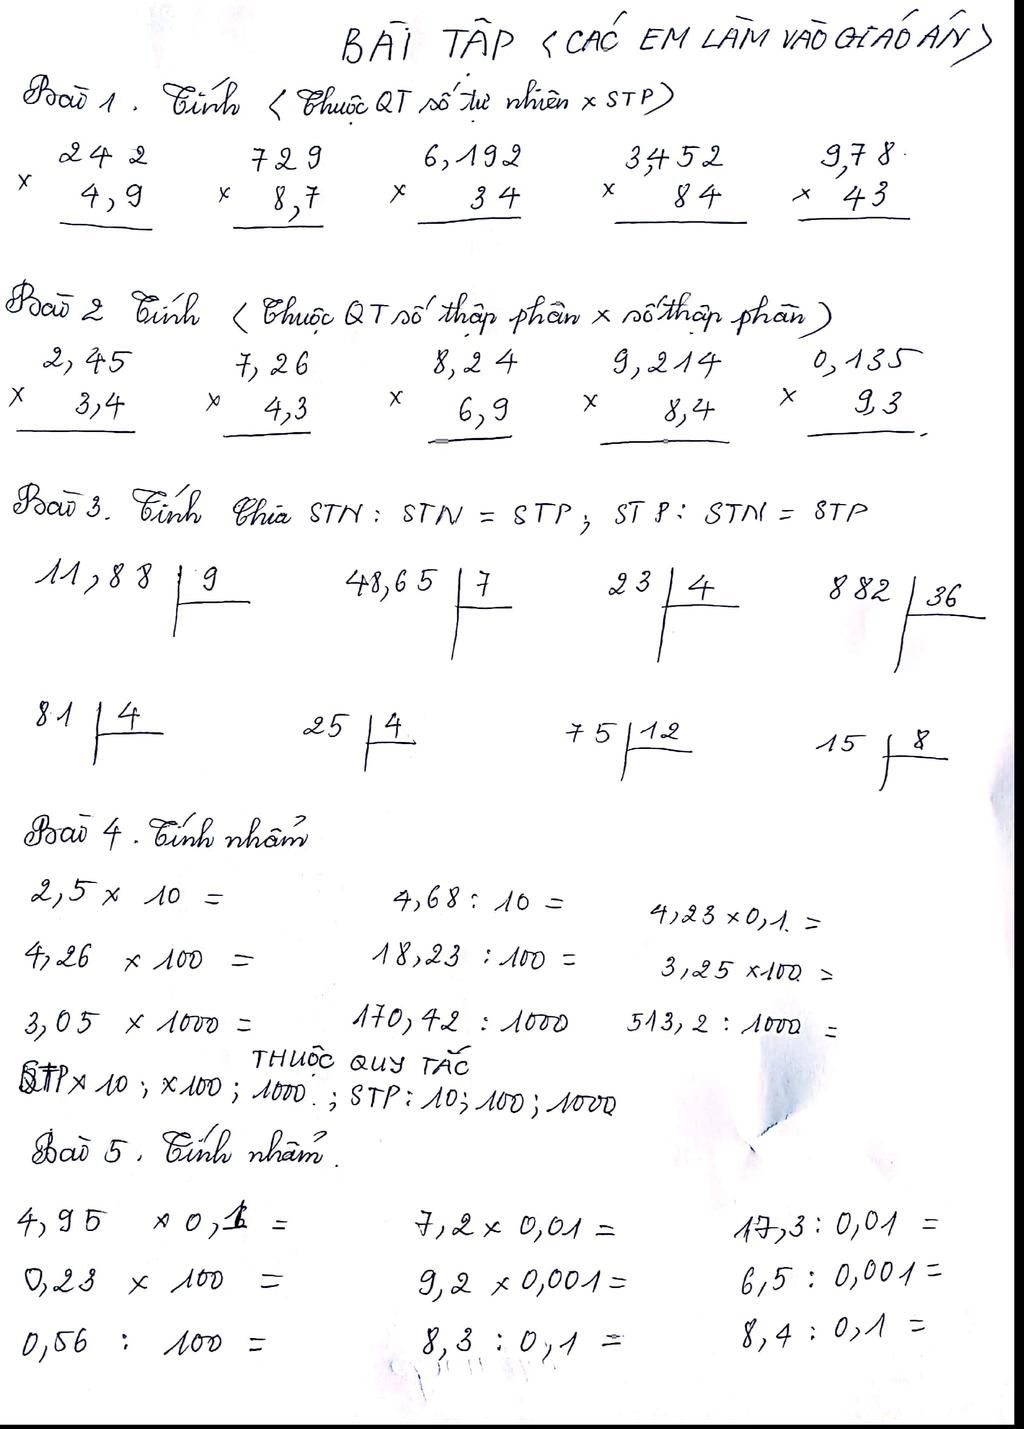 BÀI TẬP < CÁC EM LÀM VÀO GIÁO ÁN >
Bài 1. Tính < Thuộc QT số tự nhiên x STP >
242 729 6,192 3,452 9,78
x 4,9 x 8,7 x 34 x 84 x 43
Bài 2 Tính < Thuộc QT số thập phân x số thập phân >
2,45 7,26 8,24 9,214 0,135
x 3,4 x 4,3 x 6,9 x 8,4 x 9,3
Bài 3. Tính Chia STN : STN = STP ; STP : STN = STP
11,88 | 9 48,65 | 7 23 | 4 882 | 36
81 | 4 25 | 4 75 | 12 15 | 8
Bài 4. Tính nhẩm
2,5 x 10 = 4,68 : 10 = 4,23 x 0,1 =
4,26 x 100 = 18,23 : 100 = 3,25 x 100 =
3,05 x 1000 = 170,42 : 1000 513,2 : 1000 =
THUỘC QUY TẮC
STP x 10 ; x 100 ; 1000 ; STP : 10 ; 100 ; 1000
Bài 5. Tính nhẩm.
4,95 x 0,1 = 7,2 x 0,01 = 17,3 : 0,01 =
0,23 x 100 = 9,2 x 0,001 = 6,5 : 0,001 =
0,56 : 100 = 8,3 : 0,1 = 8,4 : 0,1 =